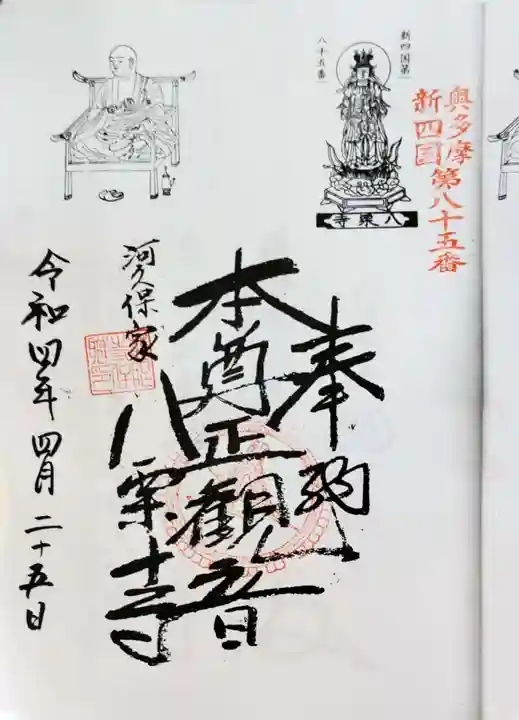 新四国第
八十五番
八栗寺
奥多摩
新四国第八十五番
奉納
本尊正観音
八栗寺
河久保家
令和四年四月二十五日